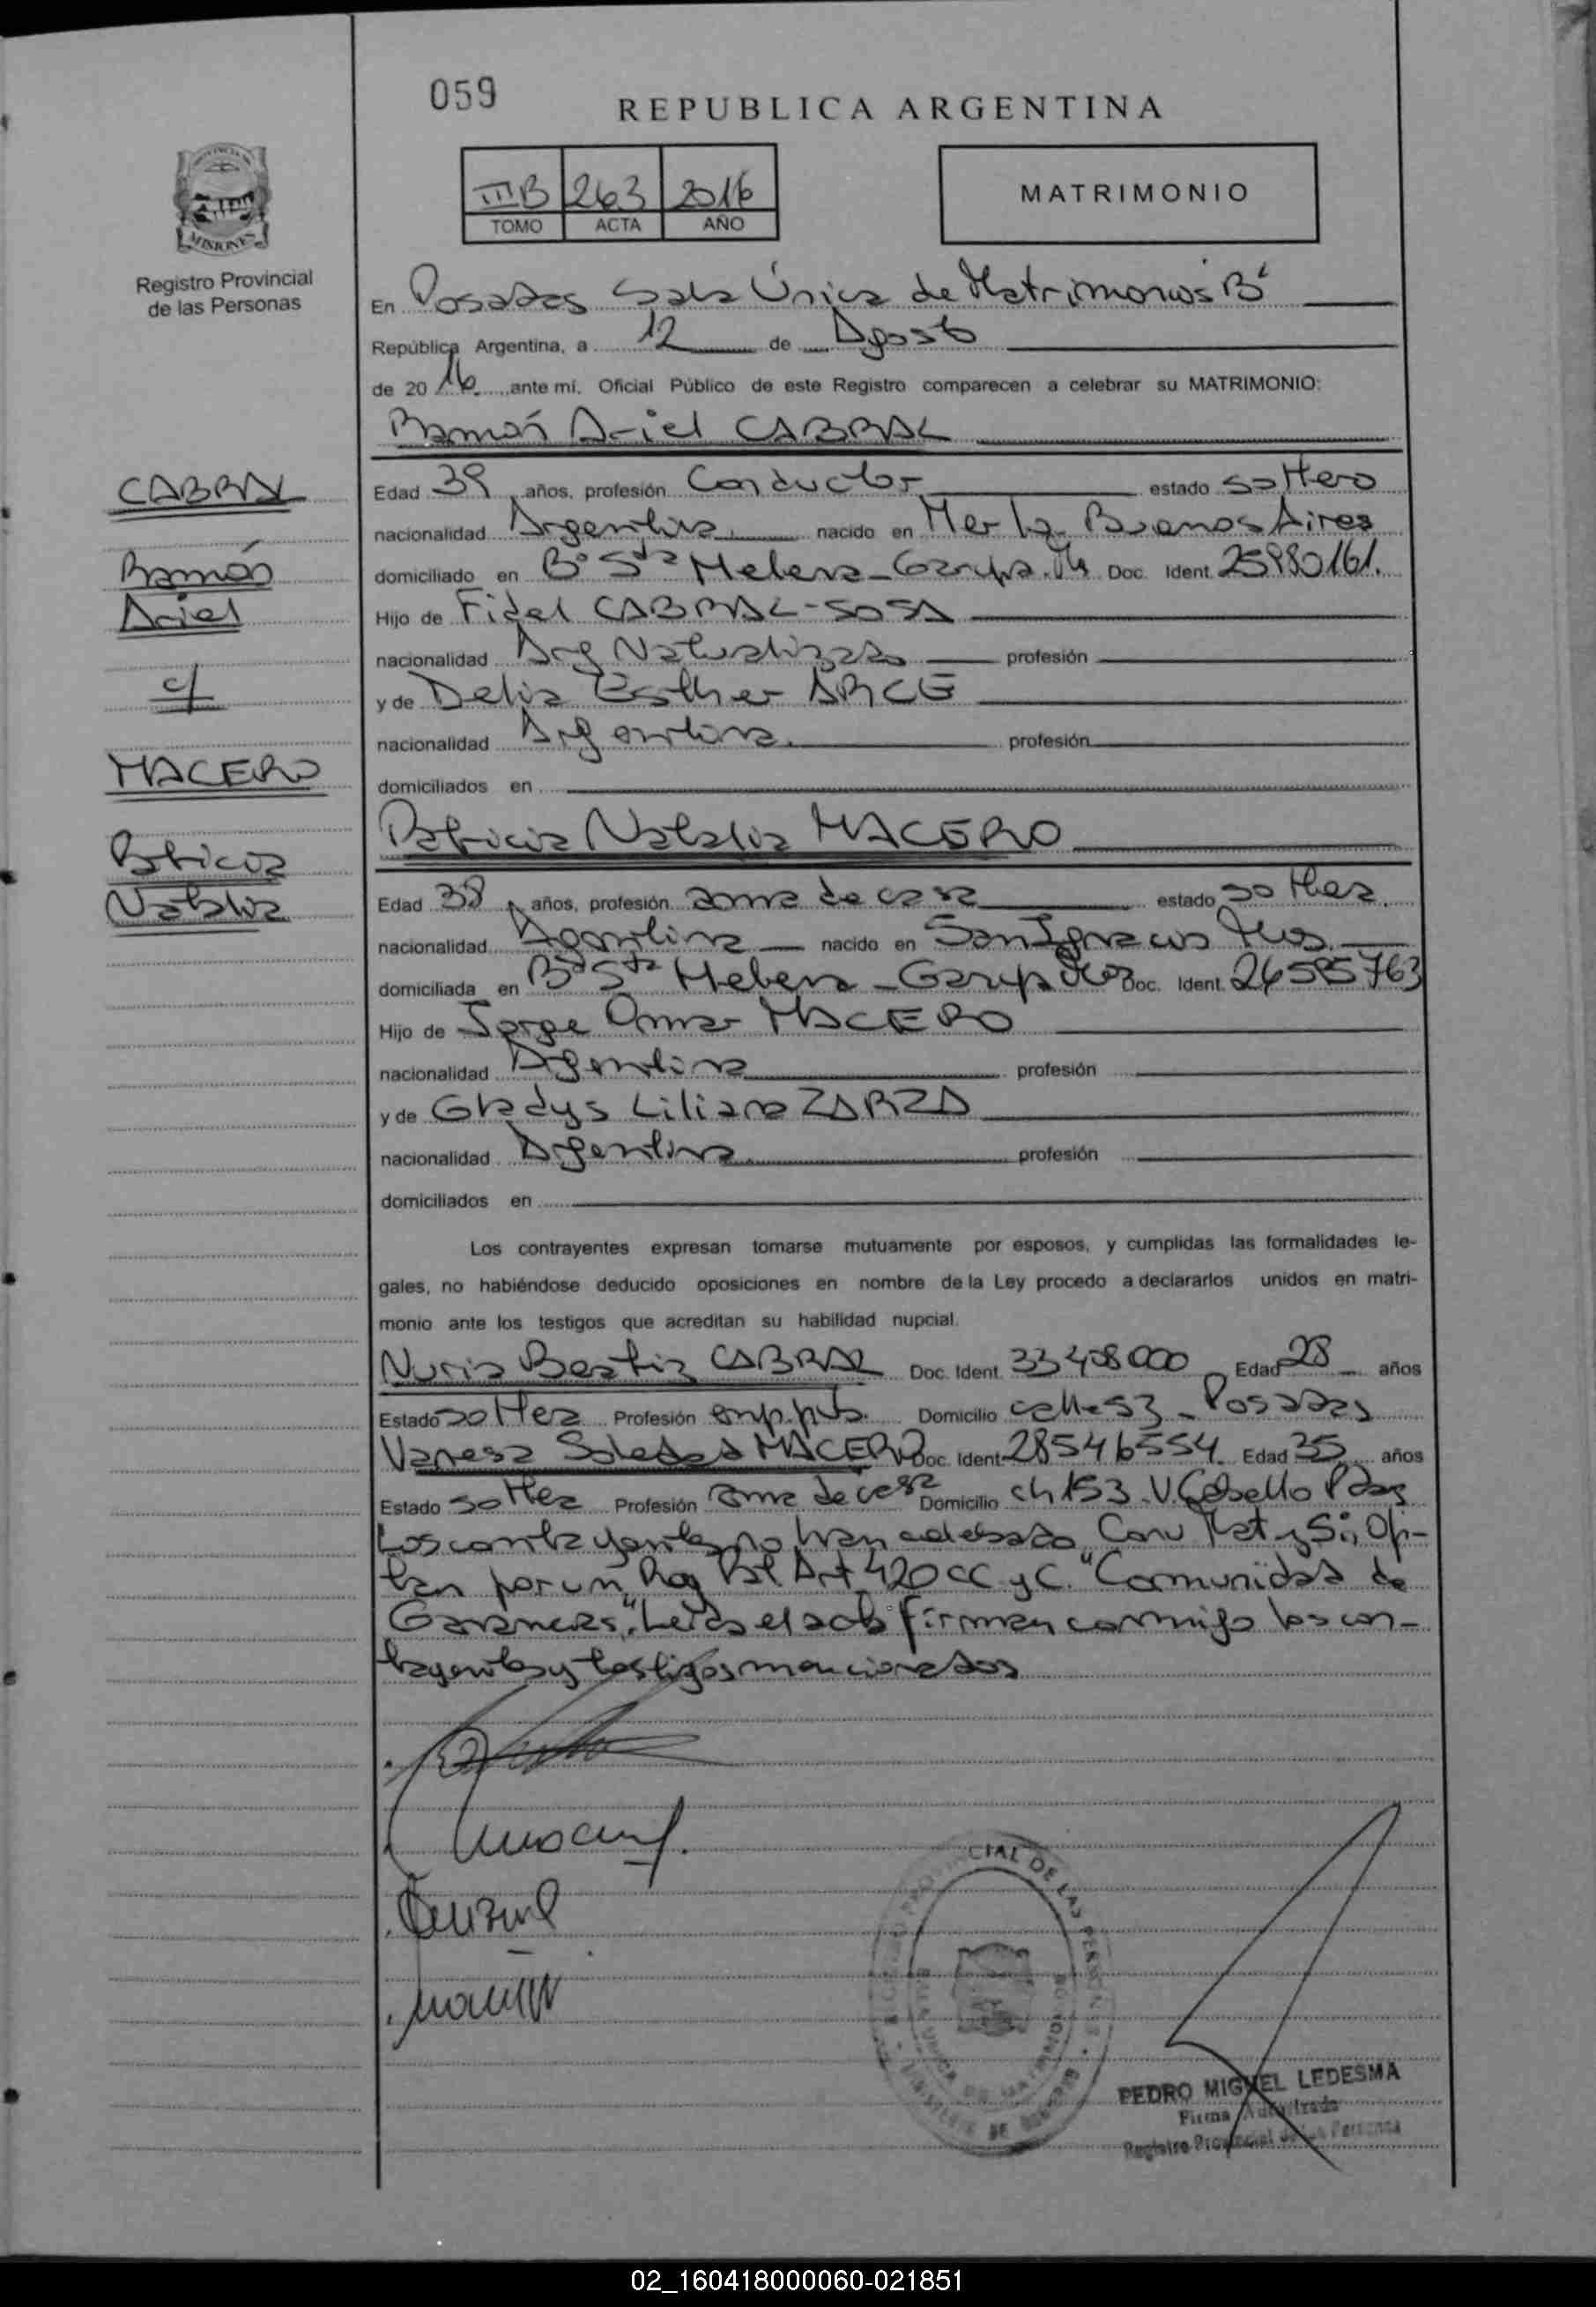 059
REPUBLICA ARGENTINA
IIIB 263 2016
TOMO ACTA AÑO
MATRIMONIO
MISIONES
Registro Provincial
de las Personas
En Posadas Sala Única de Matrimonios "B"
República Argentina, a 12 de Agosto
de 2016 ante mí. Oficial Público de este Registro comparecen a celebrar su MATRIMONIO:
Ramón Ariel CABRAL
CABRAL
Ramón
Ariel
c/
MACERO
Patricia
Natalia
Edad 39 años, profesión Conductor estado soltero
nacionalidad Argentina nacido en Merlo Buenos Aires
domiciliado en B° Sta Helena - Garupá. Ms Doc. Ident. 25980161.
Hijo de Fidel CABRAL-SOSA
nacionalidad Arg Naturalizado profesión
y de Delia Esther ARCE
nacionalidad Argentina profesión
domiciliados en
Patricia Natalia MACERO
Edad 38 años, profesión ama de casa estado soltera
nacionalidad Argentina nacido en San Ignacio Mnes
domiciliada en B° Sta Helena - Garupá Mnes Doc. Ident. 26585763
Hijo de Jorge Omar MACERO
nacionalidad Argentina profesión
y de Gladys Liliana ZARZA
nacionalidad Argentina profesión
domiciliados en
Los contrayentes expresan tomarse mutuamente por esposos, y cumplidas las formalidades le-
gales, no habiéndose deducido oposiciones en nombre de la Ley procedo a declararlos unidos en matri-
monio ante los testigos que acreditan su habilidad nupcial.
Nuria Beatriz CABRAL Doc. Ident. 33408000 Edad 28 años
Estado soltera Profesión emp. pub. Domicilio calle 53 - Posadas
Vanesa Soledad MACERO Doc. Ident. 28546554 Edad 35 años
Estado soltera Profesión ama de casa Domicilio ch 153 - V. Cabello Pdas
Los contrayentes no han celebrado Conv Mat y Si, Op-
tan por un Reg Pat Art 420 CC y C. "Comunidad de
Ganancias". Leída el acta firman conmigo los con-
trayentes y testigos mencionados
CIAL DE LAS PERSONAS
PEDRO MIGUEL LEDESMA
Firma Autorizada
Registro Provincial de las Personas
02_160418000060-021851